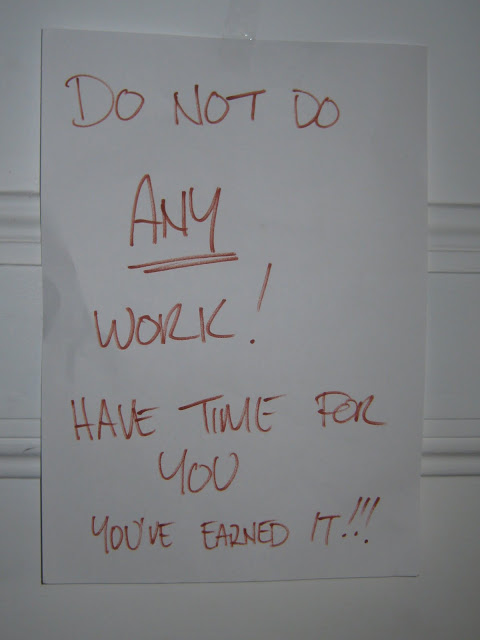 DO NOT DO
ANY
WORK!
HAVE TIME FOR
YOU
YOU'VE EARNED IT!!!